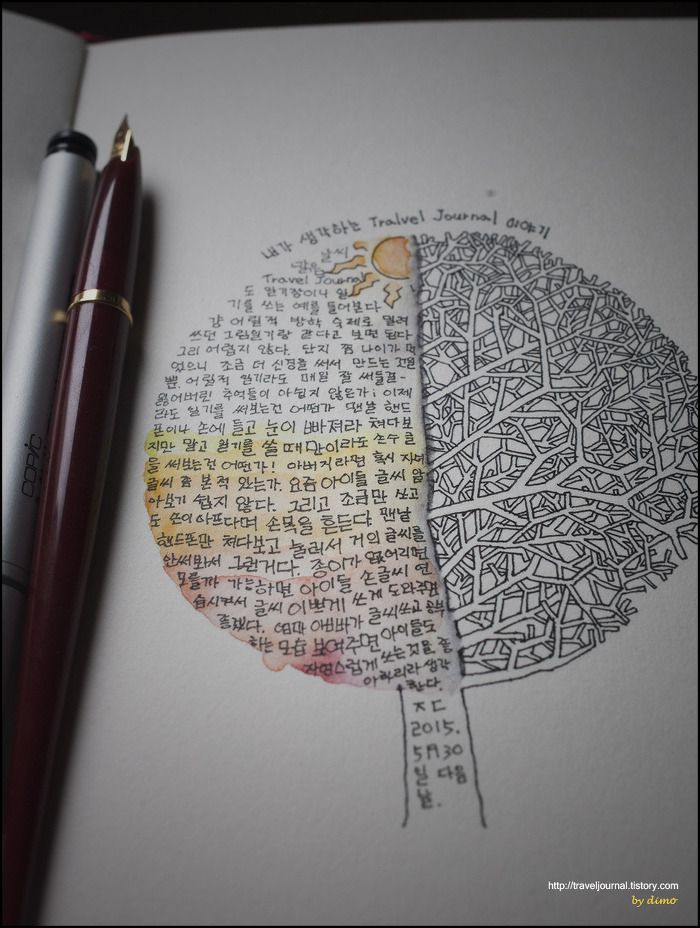 내가 생각하는 Tralvel Journal 이야기
날씨
맑음
Travel Journal
도 일기장이나 일
기를 쓰는 예를 들어본다
걍 어릴적 방학 숙제로 밀려
쓰던 그림일기랑 같다고 보면 된다
그리 어렵지 않다. 단지 쫌 나이가 먹
었으니 조금 더 신경을 써서 만드는 것일
뿐. 어릴적 일기라도 매일 잘 써둘걸~
잃어버린 추억들이 아쉽지 않은가! 이제
라도 일기를 써보는건 어떤가 맨날 핸드
폰이나 손에 들고 눈이 빠져라 쳐다보
지만 말고 일기를 쓸 때만이라도 손수 글
을 써보는건 어떤가! 아버지라면 혹시 자녀
글씨 쫌 본적 있는가. 요즘 아이들 글씨 알
아보기 쉽지 않다. 그리고 조금만 쓰고
도 손이 아프다며 손목을 흔든다. 맨날
핸드폰만 쳐다보고 눌러서 거의 글씨를
안써봐서 그런거다. 종이가 없어지면
모를까 가능하면 아이들 손글씨 연
습시켜서 글씨 이쁘게 쓰게 도와주면
좋겠다. 엄마 아빠가 글씨쓰고 공부
하는 모습 보여주면 아이들도
자연스럽게 쓰는것을 좋
아하리라 생각
한다.
ㅈㄷ
2015.
5月30
일 다음
날.
COPIC
http://traveljournal.tistory.com
by dimo